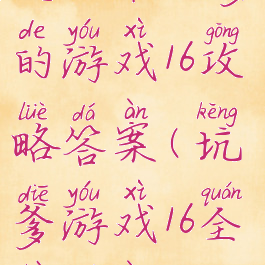 de yóu xì gōng
的游戏16攻
lüè dá àn kēng
略答案(坑
diē yóu xì quán
爹游戏16全